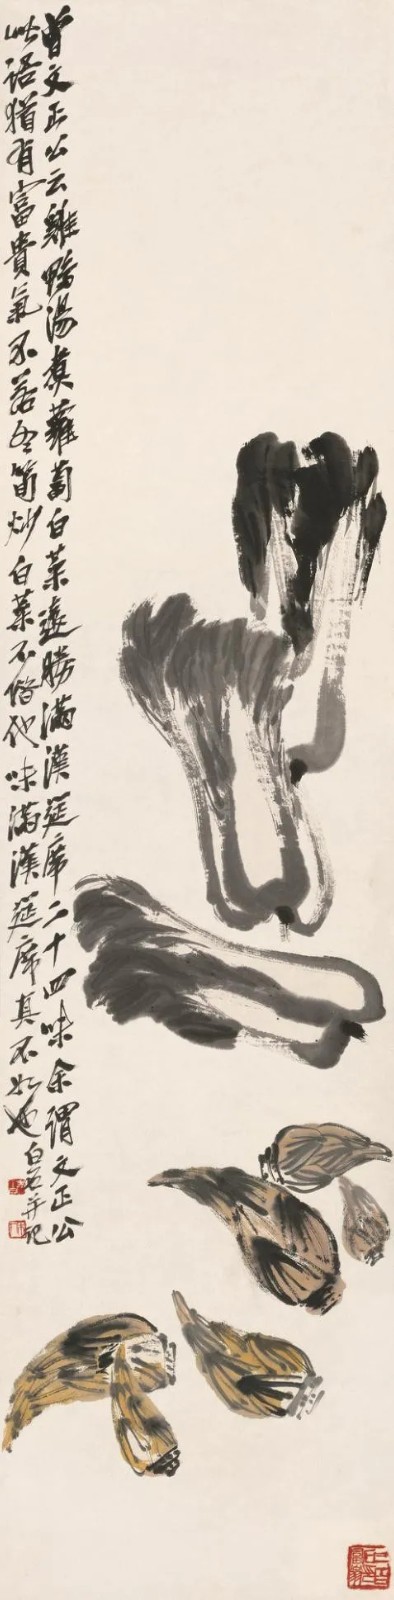 曾文正公云雞鴨湯煮蘿蔔白菜遠勝滿漢筵席二十四味余謂文正公
此語猶有富貴氣不若冬筍炒白菜不借他味滿漢筵席真不如也白石并記